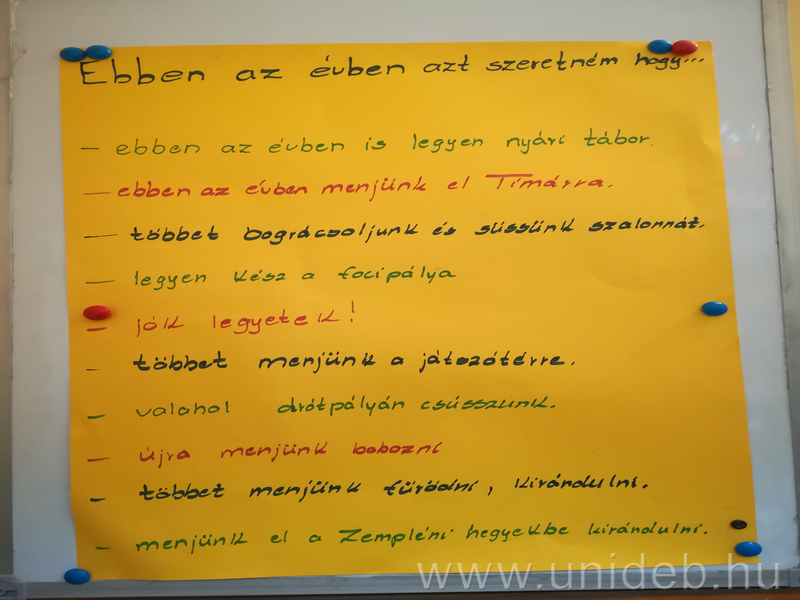 Ebben az évben azt szeretném hogy...
- ebben az évben is legyen nyári tábor.
- ebben az évben menjünk el Tímárra.
- többet bográcsoljunk és süssünk szalonnát.
- legyen kész a focipálya
- jók legyetek!
- többet menjünk a játszótérre.
- valahol drótpályán csússzunk.
- újra menjünk bobozni
- többet menjünk fürödni, kirándulni.
- menjünk el a Zempléni hegyekbe kirándulni.
www.unideb.hu